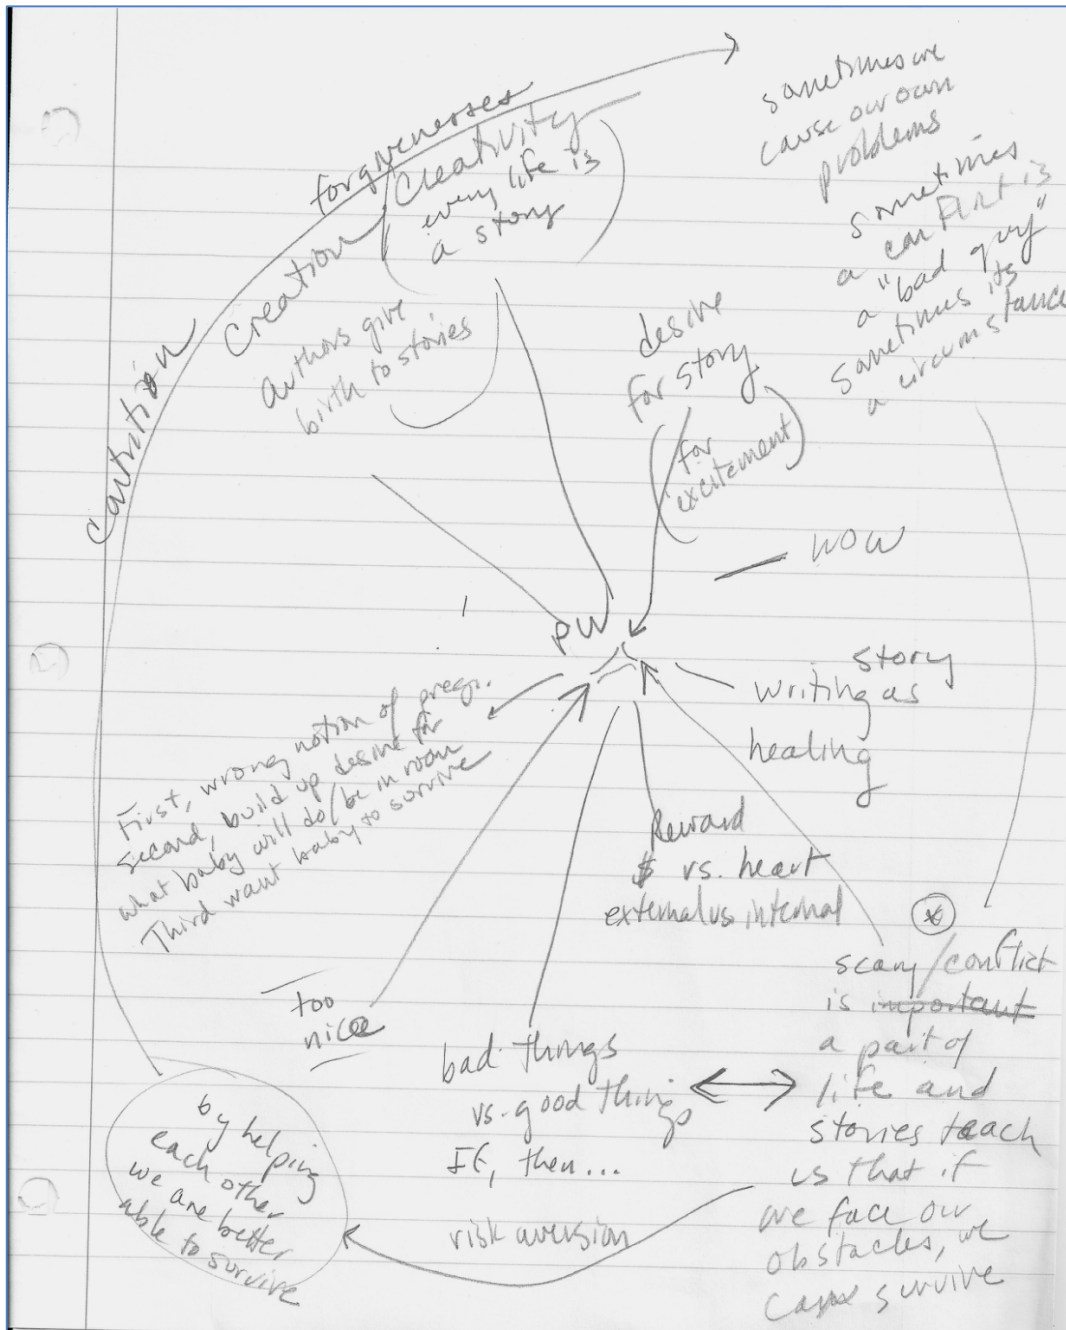 forgivenesses
Creation/Creativity
every life is
a story
authors give
birth to stories
contrition
sometimes we
cause our own
problems
sometimes
a conflict is
a "bad guy"
sometimes its
a circumstance
desire
for story
(for
excitement)
WOW
PW
story
writing as
healing
First, wrong notion of preg.
second, build up desire for
what baby will do/be in room
Third want baby to survive
Reward
$ vs. heart
external vs internal
too
nice
bad things
vs. good things
If, then...
risk aversion
scary/conflict
is important
a part of
life and
stories teach
us that if
we face our
obstacles, we
can survive
by helping
each other
we are better
able to survive